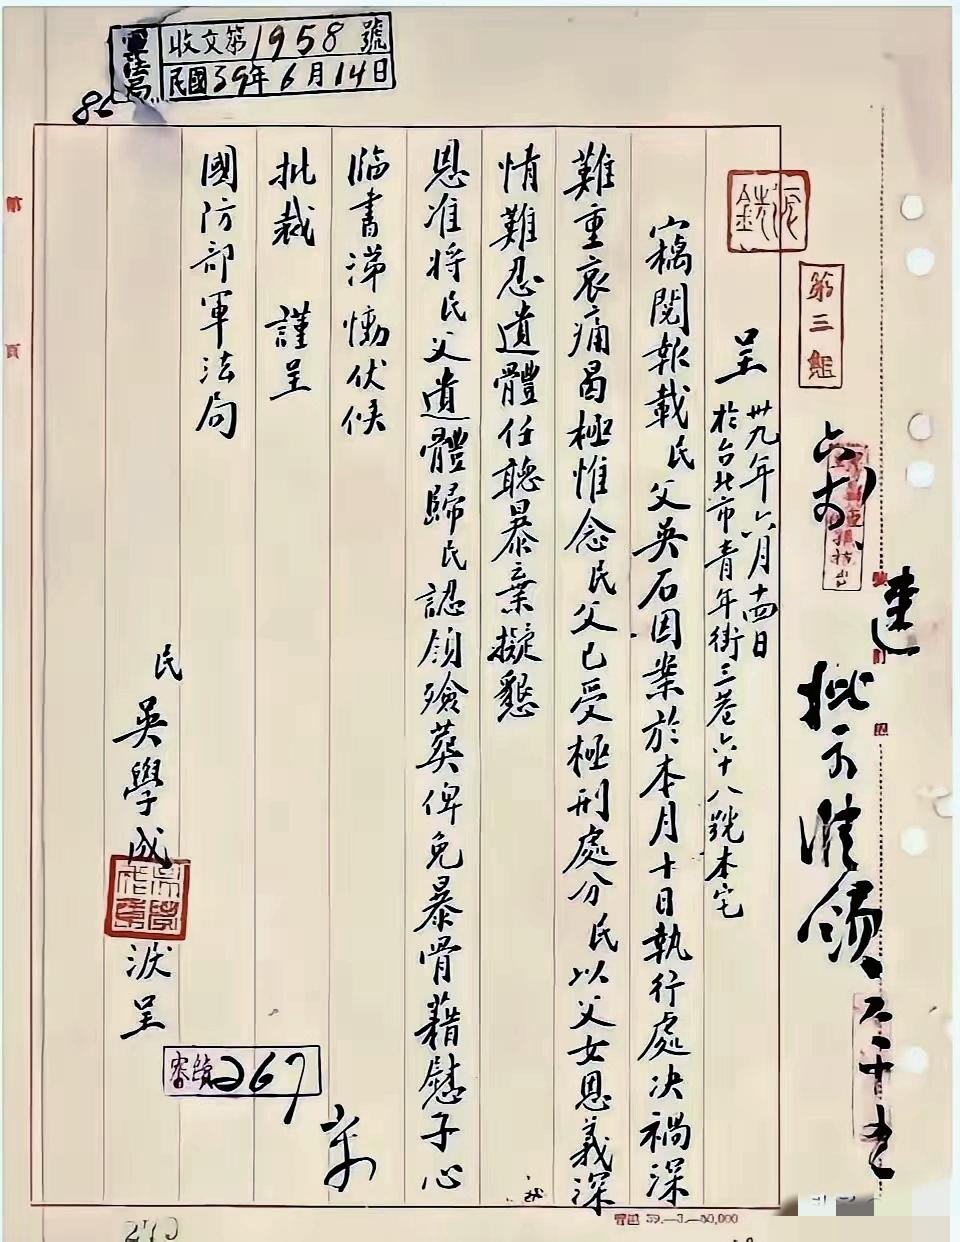 軍法局
收文第1958號
民國39年6月14日
第三組
呈
卅九年六月十四日
於台北市青年街三巷六十八號本宅
竊閱報載民父吳石因案於本月十日執行處決禍深
難重哀痛曷極惟念民父已受極刑處分民以父女恩義深
情難忍遺體任聽暴棄擬懇
恩准將民父遺體歸民認領殮葬俾免暴骨藉慰子心
臨書涕慟伏候
批裁 謹呈
國防部軍法局
民 吳學成 淚呈
267
39.—3.—50,000
270